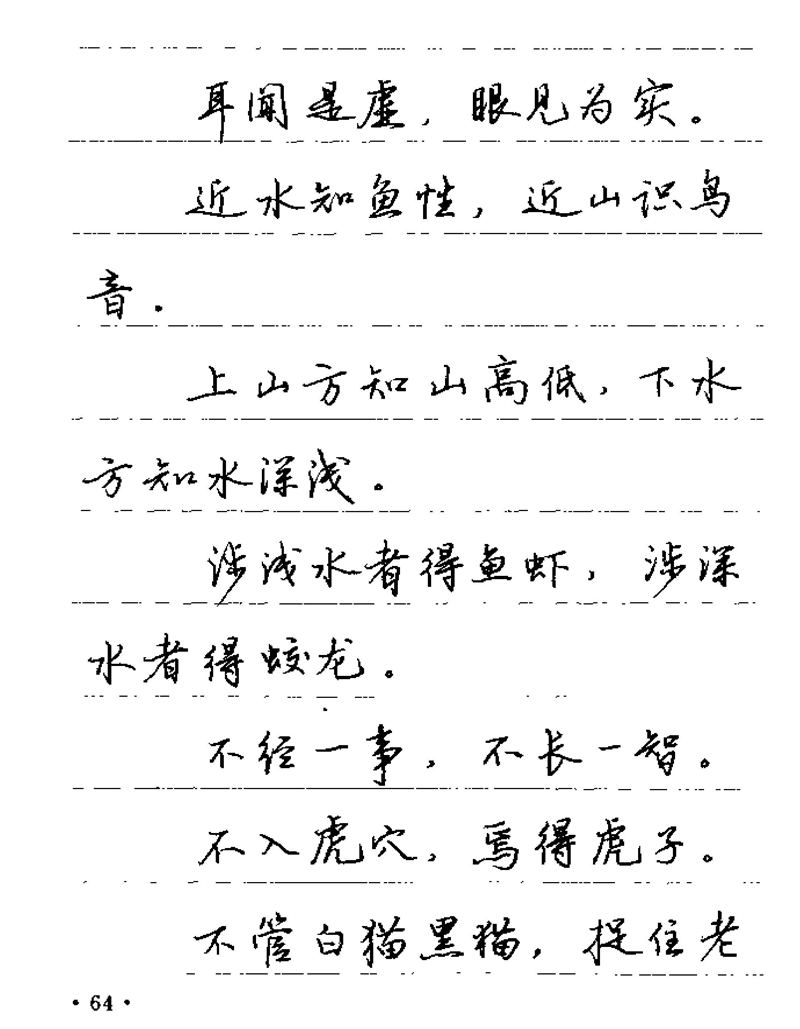 耳闻是虚，眼见为实。
近水知鱼性，近山识鸟
音.
上山方知山高低，下水
方知水深浅。
涉浅水者得鱼虾，涉深
水者得蛟龙。
不经一事，不长一智。
不入虎穴，焉得虎子。
不管白猫黑猫，捉住老
·64·